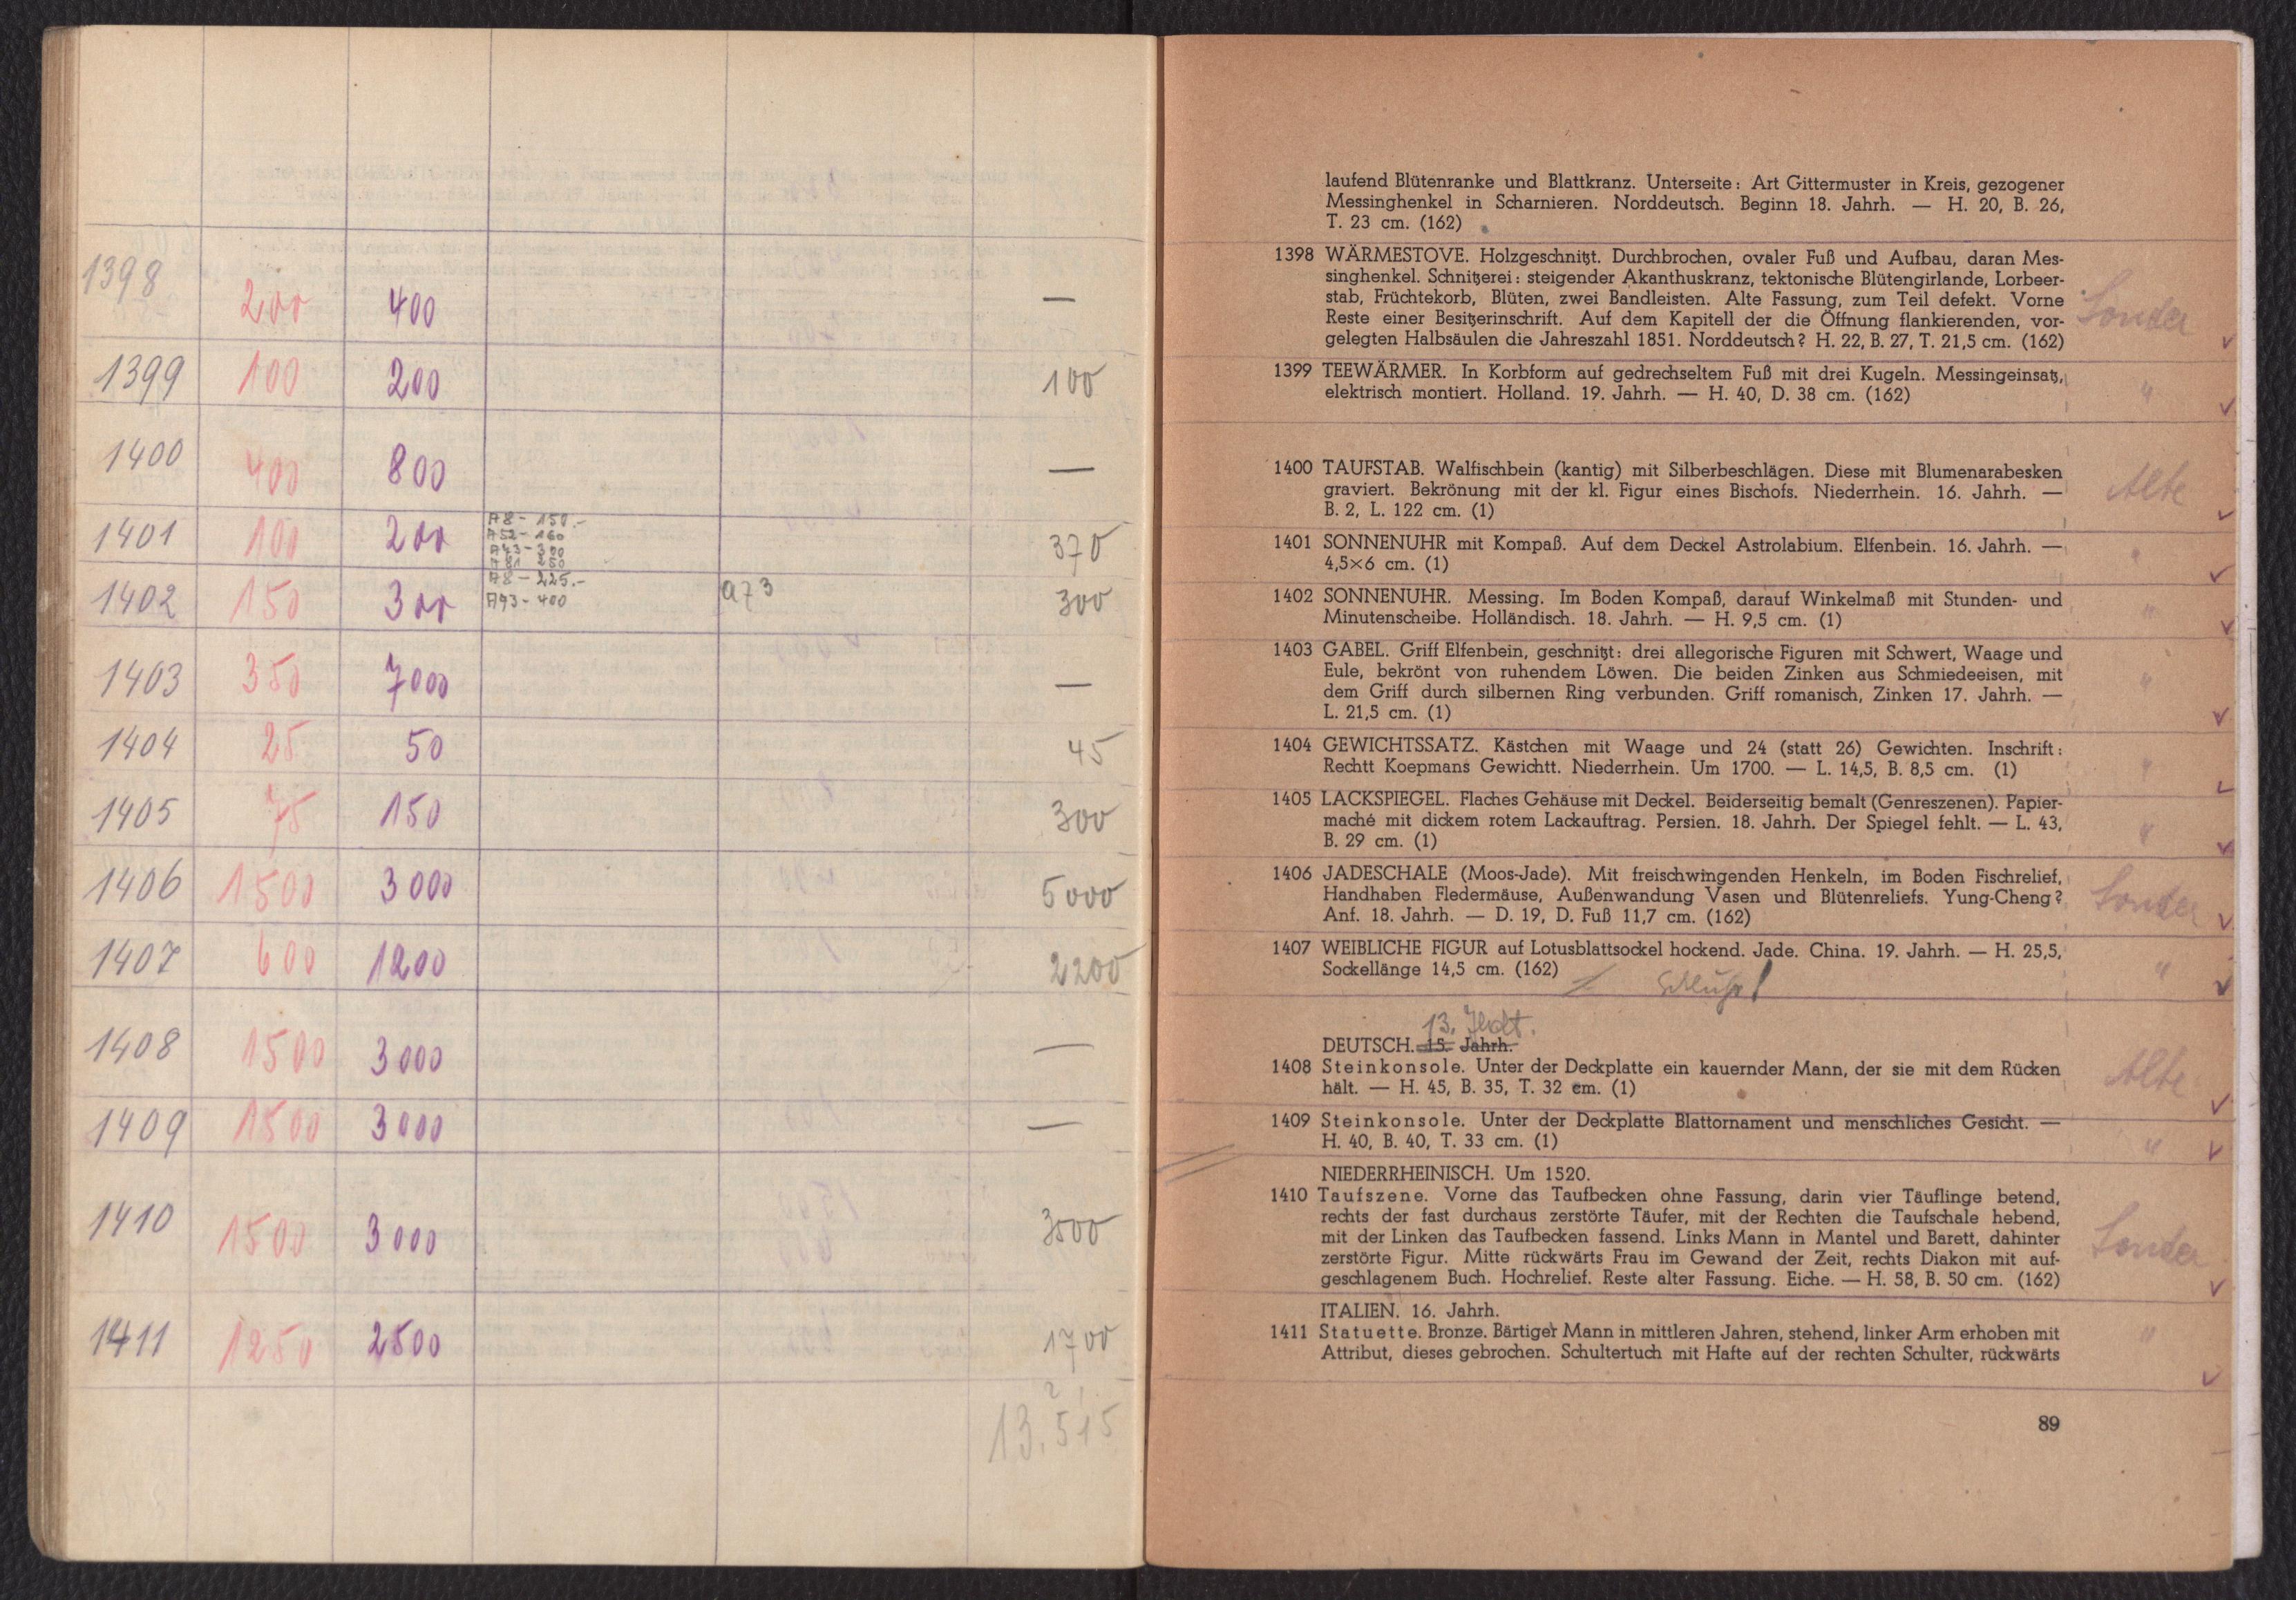 1398 200 400 —
1399 100 200 100
1400 400 800 —
A8 - 150.-
A52 - 160
1401 100 200 370
A43 - 300
A81 250
A8 - 225.-
1402 150 300 A93 - 400 a73 300
1403 350 7000 —
1404 25 50 45
1405 75 150 300
1406 1500 3000 5000
1407 600 1200 2200
1408 1500 3000 —
1409 1500 3000 —
1410 1500 3000 3500
1411 1250 2500 1700
13.515
laufend Blütenranke und Blattkranz. Unterseite: Art Gittermuster in Kreis, gezogener
Messinghenkel in Scharnieren. Norddeutsch. Beginn 18. Jahrh. — H. 20, B. 26,
T. 23 cm. (162)
1398 WÄRMESTOVE. Holzgeschnitzt. Durchbrochen, ovaler Fuß und Aufbau, daran Mes-
singhenkel. Schnitzerei: steigender Akanthuskranz, tektonische Blütengirlande, Lorbeer-
stab, Früchtekorb, Blüten, zwei Bandleisten. Alte Fassung, zum Teil defekt. Vorne
Reste einer Besitzerinschrift. Auf dem Kapitell der die Öffnung flankierenden, vor- Sonder
gelegten Halbsäulen die Jahreszahl 1851. Norddeutsch? H. 22, B. 27, T. 21,5 cm. (162) ✓
1399 TEEWÄRMER. In Korbform auf gedrechseltem Fuß mit drei Kugeln. Messingeinsatz,
elektrisch montiert. Holland. 19. Jahrh. — H. 40, D. 38 cm. (162) " ✓
1400 TAUFSTAB. Walfischbein (kantig) mit Silberbeschlägen. Diese mit Blumenarabesken
graviert. Bekrönung mit der kl. Figur eines Bischofs. Niederrhein. 16. Jahrh. — Alte
B. 2, L. 122 cm. (1) ✓
1401 SONNENUHR mit Kompaß. Auf dem Deckel Astrolabium. Elfenbein. 16. Jahrh. — "
4,5×6 cm. (1) ✓
1402 SONNENUHR. Messing. Im Boden Kompaß, darauf Winkelmaß mit Stunden- und "
Minutenscheibe. Holländisch. 18. Jahrh. — H. 9,5 cm. (1) ✓
1403 GABEL. Griff Elfenbein, geschnitzt: drei allegorische Figuren mit Schwert, Waage und
Eule, bekrönt von ruhendem Löwen. Die beiden Zinken aus Schmiedeeisen, mit "
dem Griff durch silbernen Ring verbunden. Griff romanisch, Zinken 17. Jahrh. —
L. 21,5 cm. (1) ✓
1404 GEWICHTSSATZ. Kästchen mit Waage und 24 (statt 26) Gewichten. Inschrift:
Rechtt Koepmans Gewichtt. Niederrhein. Um 1700. — L. 14,5, B. 8,5 cm. (1) " ✓
1405 LACKSPIEGEL. Flaches Gehäuse mit Deckel. Beiderseitig bemalt (Genreszenen). Papier-
maché mit dickem rotem Lackauftrag. Persien. 18. Jahrh. Der Spiegel fehlt. — L. 43, "
B. 29 cm. (1) ✓
1406 JADESCHALE (Moos-Jade). Mit freischwingenden Henkeln, im Boden Fischrelief,
Handhaben Fledermäuse, Außenwandung Vasen und Blütenreliefs. Yung-Cheng? Sonder
Anf. 18. Jahrh. — D. 19, D. Fuß 11,7 cm. (162) ✓
1407 WEIBLICHE FIGUR auf Lotusblattsockel hockend. Jade. China. 19. Jahrh. — H. 25,5,
Sockellänge 14,5 cm. (162) " ✓
13. Jhdt.
DEUTSCH. 15. Jahrh.
1408 Steinkonsole. Unter der Deckplatte ein kauernder Mann, der sie mit dem Rücken Alte
hält. — H. 45, B. 35, T. 32 cm. (1) ✓
1409 Steinkonsole. Unter der Deckplatte Blattornament und menschliches Gesicht. —
H. 40, B. 40, T. 33 cm. (1) " ✓
NIEDERRHEINISCH. Um 1520.
1410 Taufszene. Vorne das Taufbecken ohne Fassung, darin vier Täuflinge betend,
rechts der fast durchaus zerstörte Täufer, mit der Rechten die Taufschale hebend,
mit der Linken das Taufbecken fassend. Links Mann in Mantel und Barett, dahinter Sonder
zerstörte Figur. Mitte rückwärts Frau im Gewand der Zeit, rechts Diakon mit auf-
geschlagenem Buch. Hochrelief. Reste alter Fassung. Eiche. — H. 58, B. 50 cm. (162) ✓
ITALIEN. 16. Jahrh.
1411 Statuette. Bronze. Bärtiger Mann in mittleren Jahren, stehend, linker Arm erhoben mit "
Attribut, dieses gebrochen. Schultertuch mit Hafte auf der rechten Schulter, rückwärts ✓
89